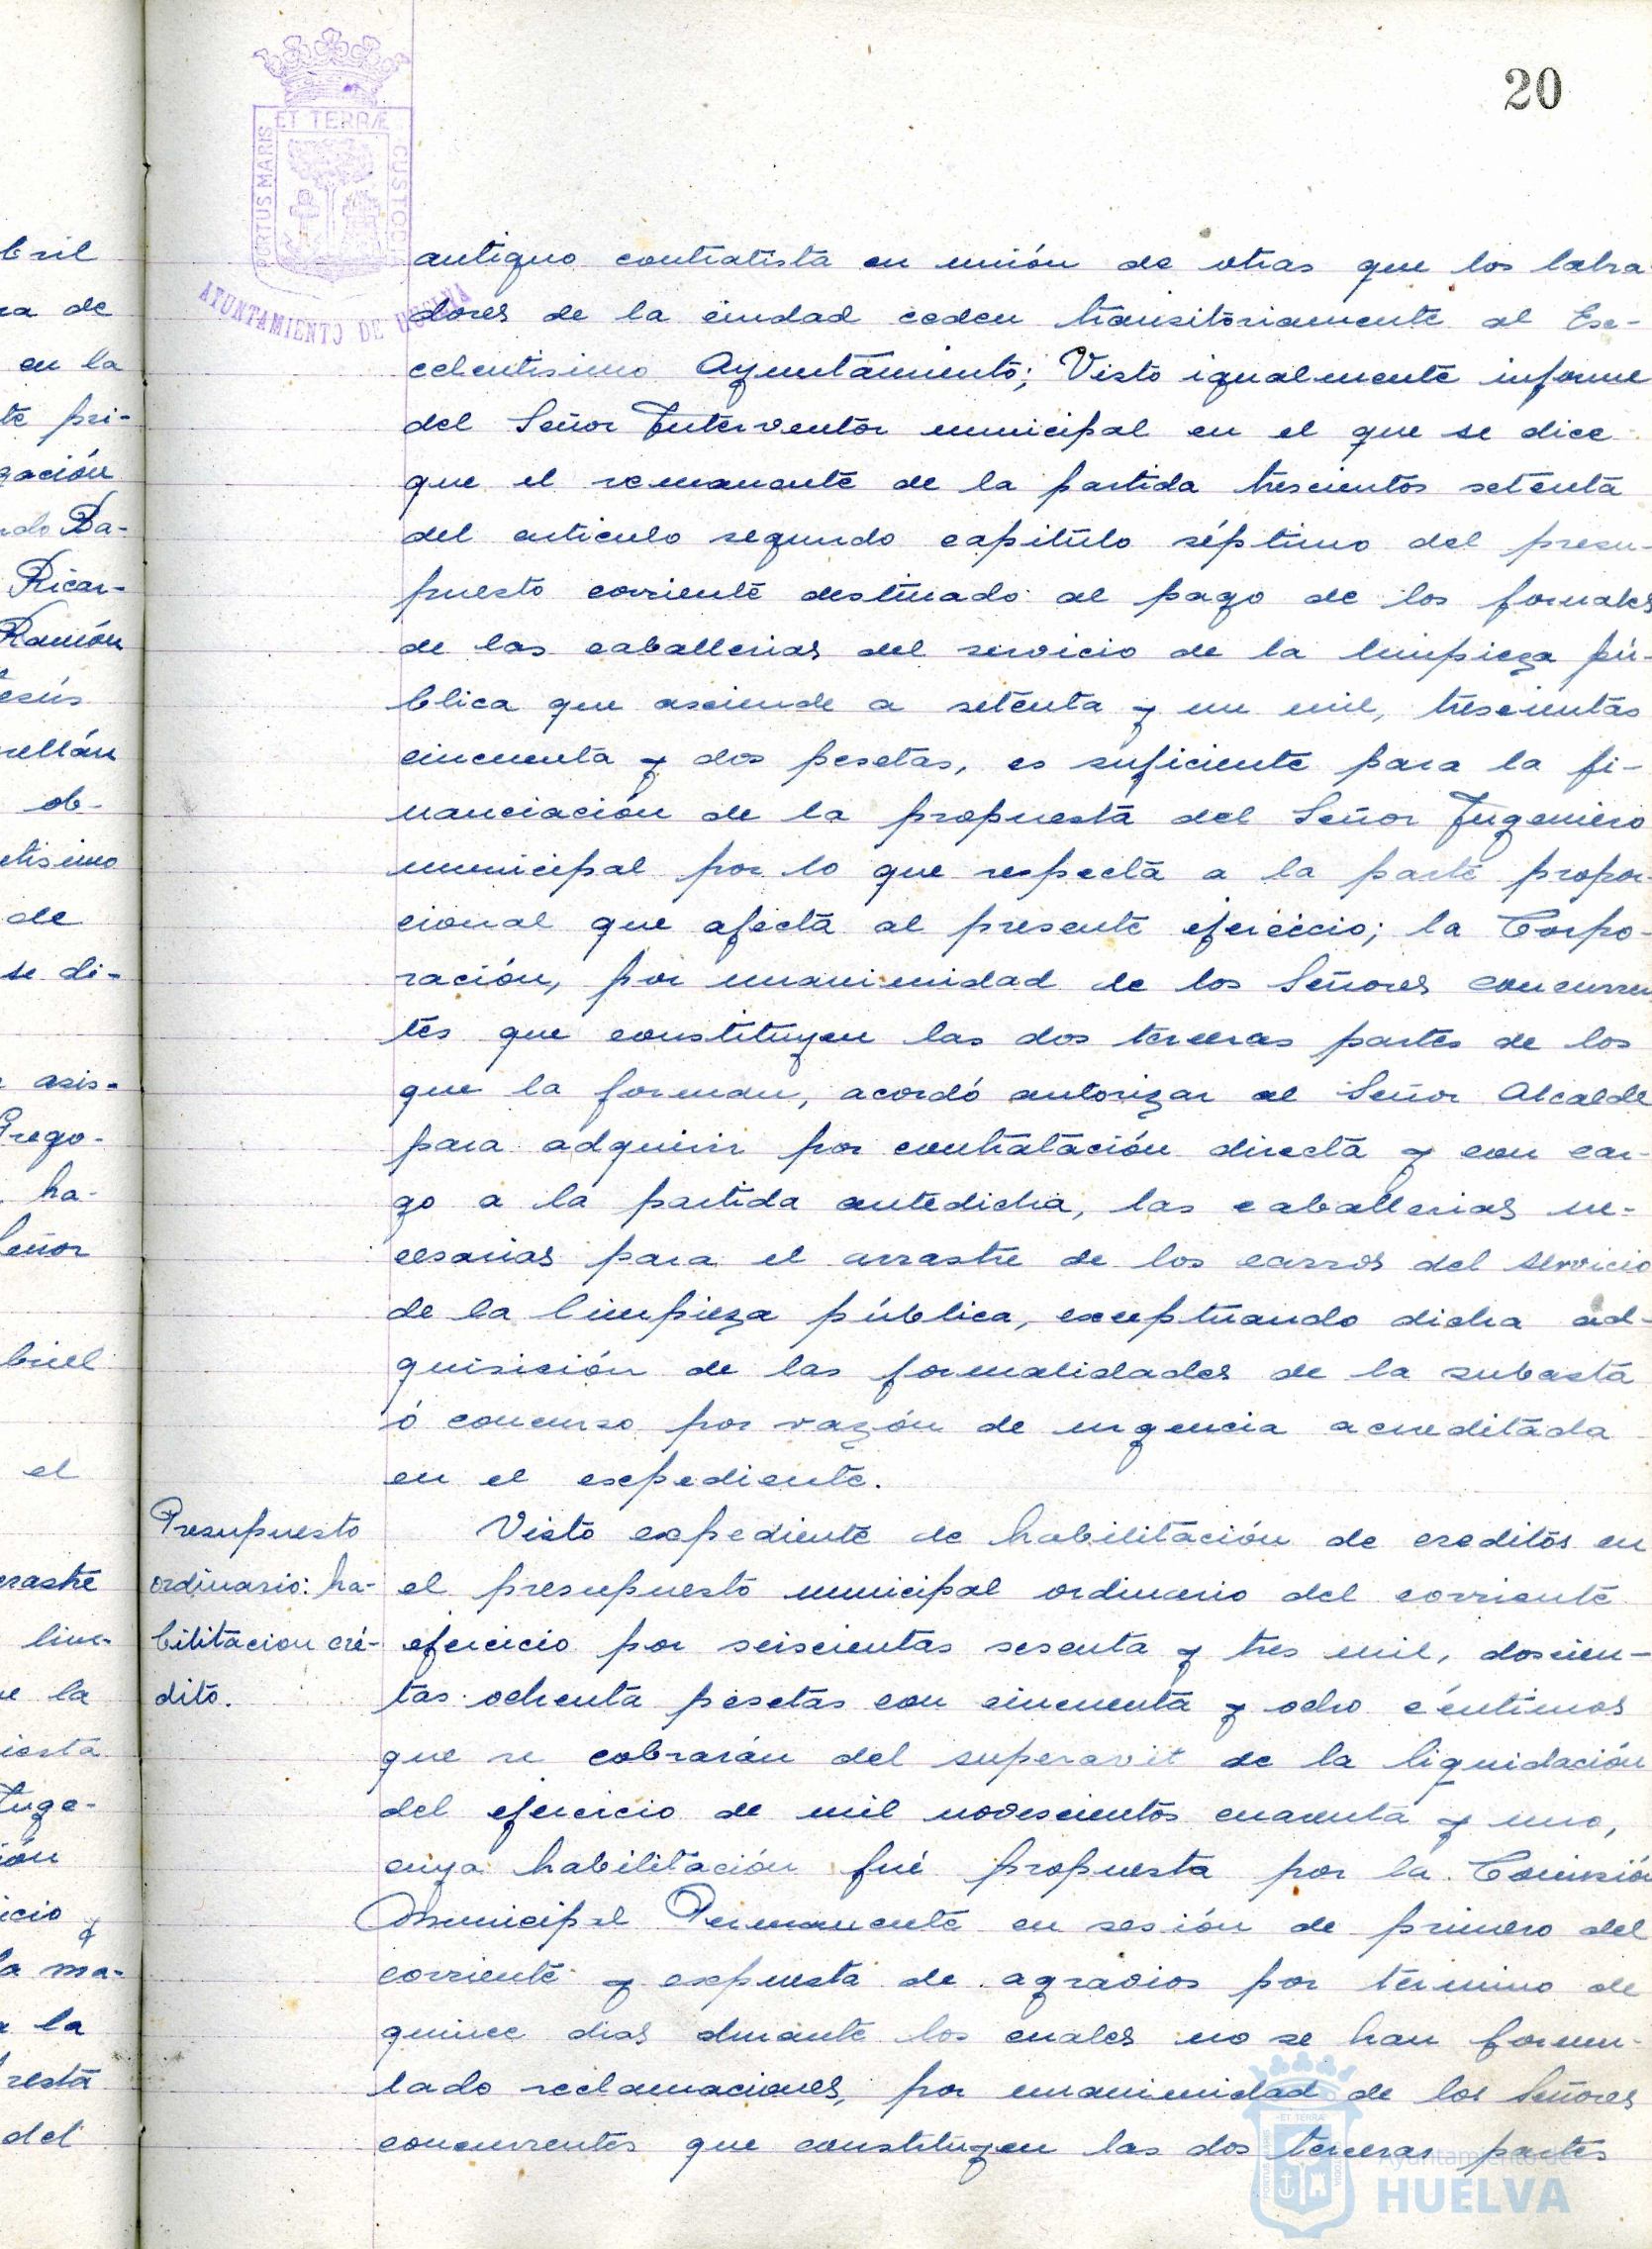 20
ET TERRÆ
PORTUS MARIS
CUSTODI
AYUNTAMIENTO DE HUELVA
antiguo contratista en unión de otras que los labra-
dores de la ciudad ceden transitoriamente al Exc-
celentisimo Ayuntamiento; Visto igualmente informe
del Señor Interventor municipal en el que se dice
que el remanente de la partida trescientos setenta
del articulo segundo capitulo séptimo del presu-
puesto corriente destinado al pago de los jornales
de las caballerias del servicio de la limpieza pú-
blica que asciende a setenta y un mil, trescientas
cincuenta y dos pesetas, es suficiente para la fi-
nanciación de la propuesta del Señor Ingeniero
municipal por lo que respecta a la parte propor-
cional que afecta al presente ejercicio; la Corpo-
ración, por unanimidad de los Señores concurren
tes que constituyen las dos terceras partes de los
que la forman, acordó autorizar al Señor Alcalde
para adquirir por contratación directa y con car-
go a la partida antedicha, las caballerias ne-
cesarias para el arrastre de los carros del servicio
de la limpieza pública, exceptuando dicha ad-
quisición de las formalidades de la subasta
ó concurso por razón de urgencia acreditada
en el expediente.
Presupuesto
ordinario: ha-
bilitacion cré-
dito.
Visto expediente de habilitación de creditos en
el presupuesto municipal ordinario del corriente
ejercicio por seiscientas sesenta y tres mil, doscien-
tas ochenta pesetas con cincuenta y ocho céntimos
que se cobrarán del superavit de la liquidación
del ejercicio de mil novescientos cuarenta y uno,
cuya habilitación fué propuesta por la Comisión
Municipal Permanente en sesión de primero del
corriente y expuesta de agravios por termino de
quince dias durante los cuales no se han formu-
lado reclamaciones, por unanimidad de los Señores
concurrentes que constituyen las dos terceras partes
bril
ra de
en la
te pri-
gación
ndo Ba-
Ricar-
Ramón
esús
rellán
ob-
ntisimo
de
se di-
asis-
Grego-
ha-
Señor
briel
el
rrastre
lim-
ue la
iesta
Inge-
ión
icio y
la ma-
a la
resta
del
Ayuntamiento de
HUELVA